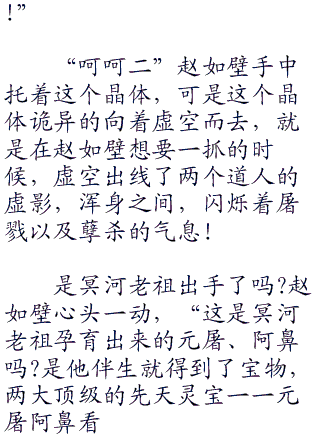 !”
“呵呵二”赵如壁手中
托着这个晶体，可是这个晶
体诡异的向着虚空而去，就
是在赵如壁想要一抓的时
候，虚空出线了两个道人的
虚影，浑身之间，闪烁着屠
戮以及孽杀的气息！
是冥河老祖出手了吗?赵
如壁心头一动，“这是冥河
老祖孕育出来的元屠、阿鼻
吗?是他伴生就得到了宝物，
两大顶级的先天灵宝一一元
屠阿鼻看